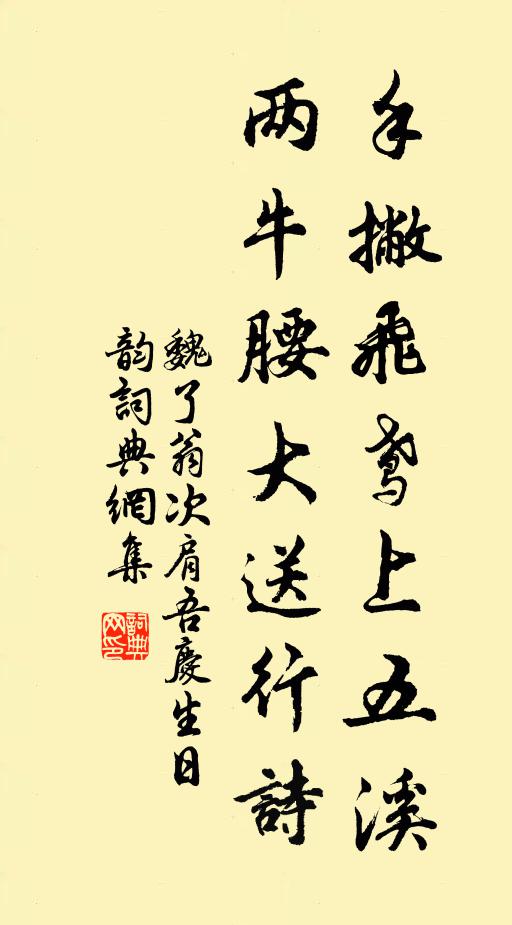 手撇飛鳶上五溪
两牛腰大送行詩
魏了翁次肩吾慶生日
韵詞典網集
詞典网印